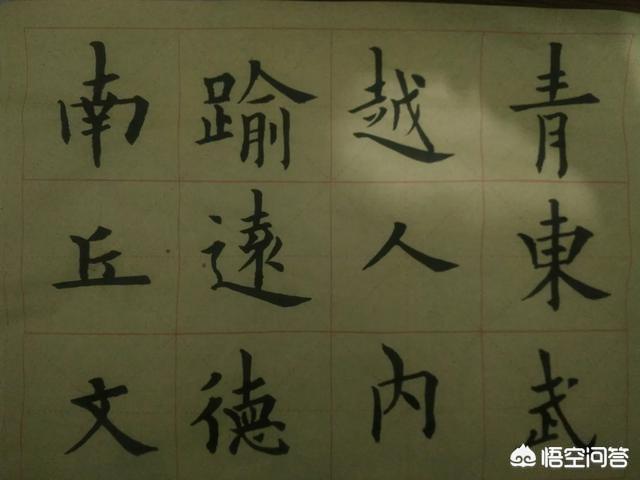 青東武
越人内
踰遠德
南丘文
悟空问答